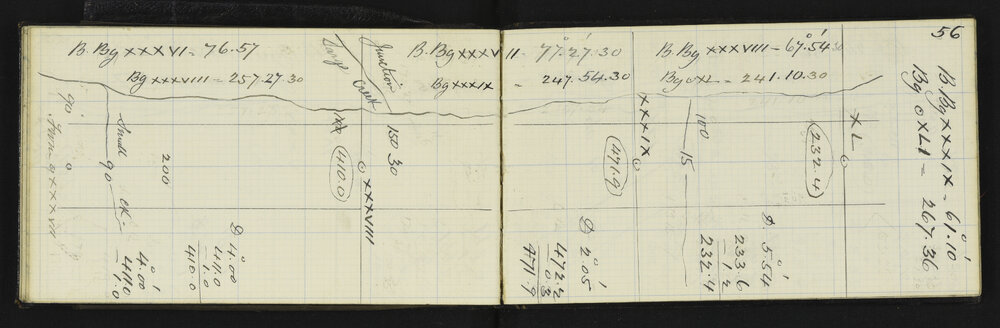 56
B. Bg XXXVI = 76.57
Bg XXXVIII = 257.27.30
Junction
Creek
B. Bg XXXVII = 77°.27'.30
Bg XXXIX = 247.54.30
B. Bg XXXVIII = 67°.54'.30
Bg o XL = 241.10.30
B. Bg XXXIX = 61°.10'
Bg o XLI = 267.36
90
From o XXXVII
Small
90
CK.
200
D 4°.00'
411.0
-1.0
410.0
4°.00'
411.0
-1.0
100
410.0
XXXVIII
150 30
XXXIX
471.9
D 2°.05'
472.2
0.3
471.9
100
15
232.4
XL
D. 5°.54'
233.6
-1.2
232.4